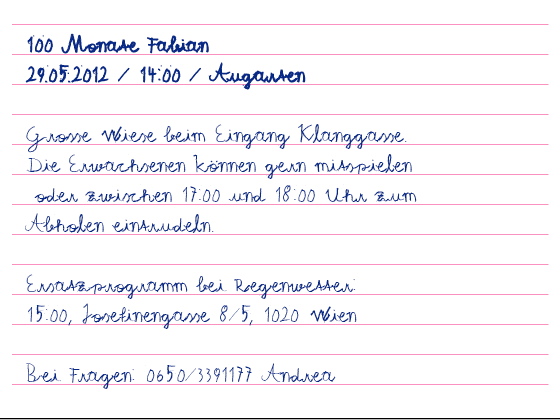 100 Monate Fabian
29.05.2012 / 14:00 / Augarten
Grosse Wiese beim Eingang Klanggasse.
Die Erwachsenen können gern mitspielen
oder zwischen 17:00 und 18:00 Uhr zum
Abholen eintrudeln.
Ersatzprogramm bei Regenwetter:
15:00, Josefinengasse 8/5, 1020 Wien
Bei Fragen: 0650/3391177 Andrea